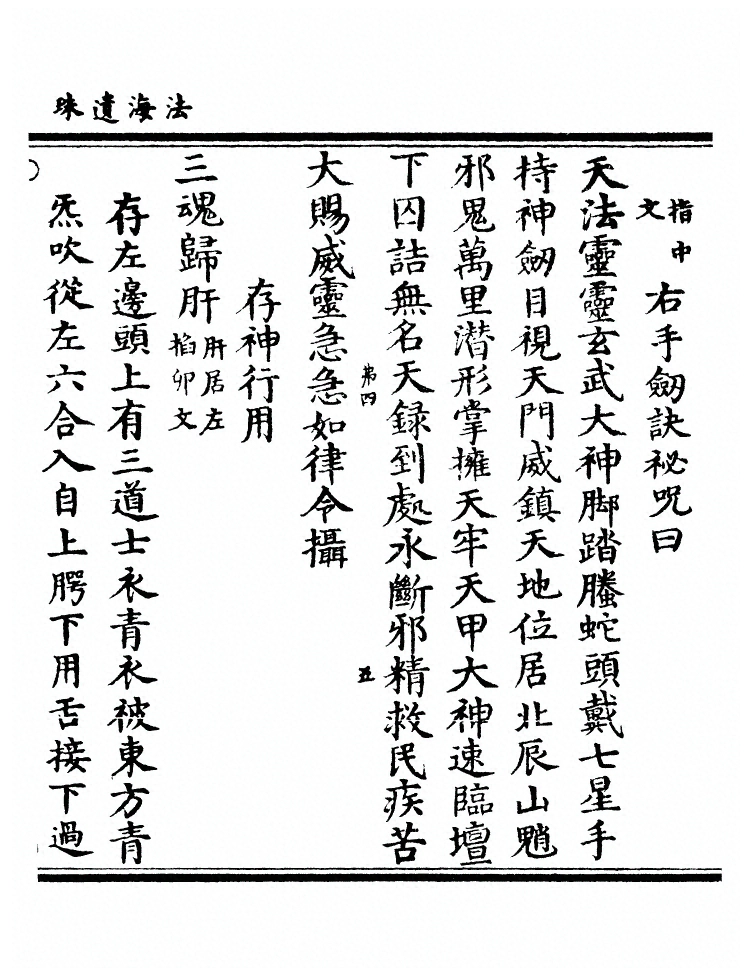 法海遺珠
指中文
右手劔訣祕呪曰
天法靈靈玄武大神脚踏螣蛇頭戴七星手
持神劔目視天門威鎮天地位居北辰山魈
邪鬼萬里潛形掌擁天牢天甲大神速臨壇
下囚詰無名天録到處永斷邪精救民疾苦
第四
五
大賜威靈急急如律令攝
存神行用
三魂歸肝肝居左掐卯文
存左邊頭上有三道士衣青衣被東方青
炁吹從左六合入自上腭下用舌接下過